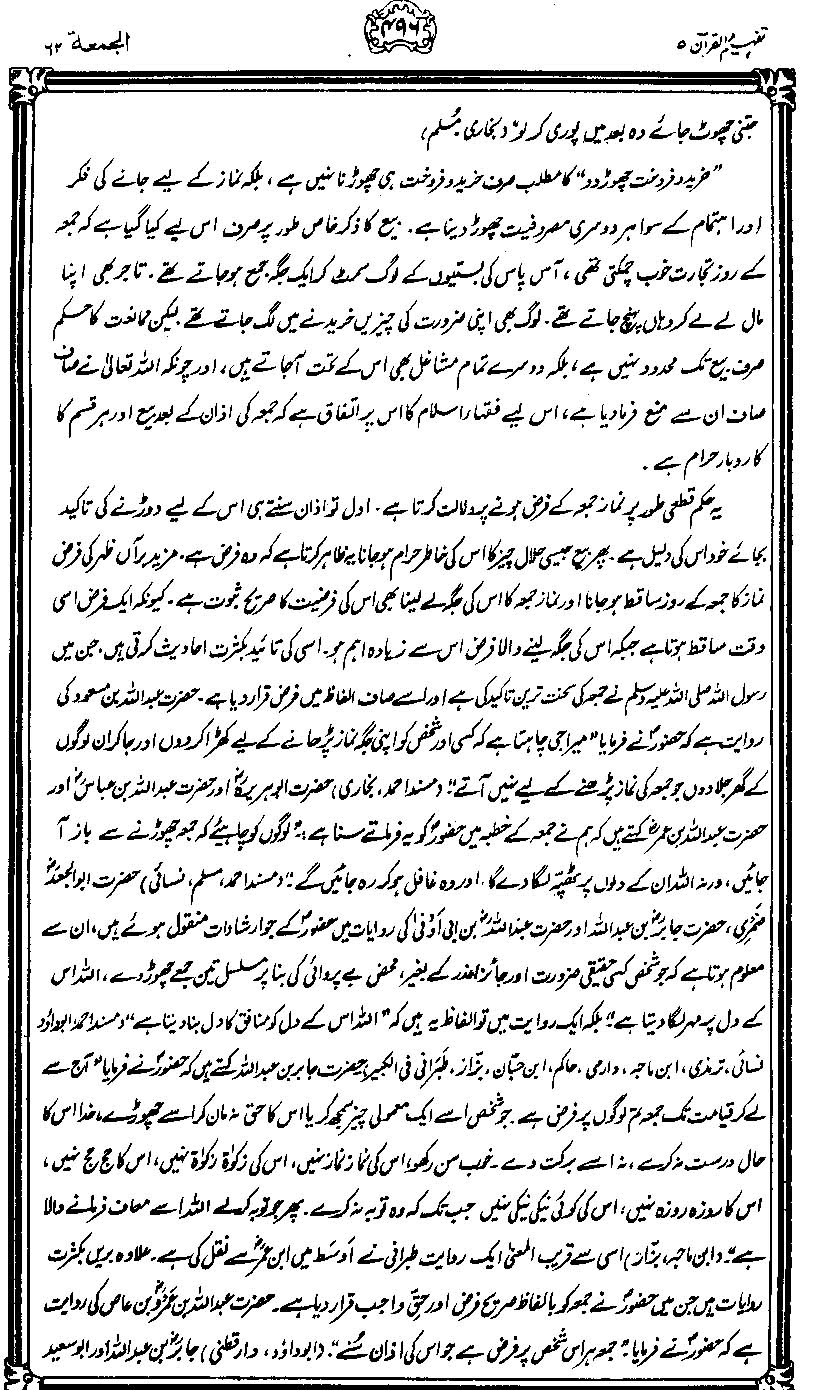 تفہیم القرآن ۵
۴۹۶
الجمعۃ ۶۲
جتنی چھوٹ جائے وہ بعد میں پوری کر لو“ (بخاری مُسلم)
”خرید و فروخت چھوڑ دو“ کا مطلب صرف خرید و فروخت ہی چھوڑنا نہیں ہے، بلکہ نماز کے لیے جانے کی فکر
اور اہتمام کے سوا ہر دوسری مصروفیت چھوڑ دینا ہے۔ بیع کا ذکر خاص طور پر صرف اس لیے کیا گیا ہے کہ جمعہ
کے روز تجارت خوب چمکتی تھی، آس پاس کی بستیوں کے لوگ سمٹ کر ایک جگہ جمع ہو جاتے تھے۔ تاجر بھی اپنا
مال لے لے کر وہاں پہنچ جاتے تھے۔ لوگ بھی اپنی ضرورت کی چیزیں خریدنے میں لگ جاتے تھے لیکن ممانعت کا حکم
صرف بیع تک محدود نہیں ہے، بلکہ دوسرے تمام مشاغل بھی اس کے تحت آجاتے ہیں، اور چونکہ اللہ تعالیٰ نے صاف
صاف ان سے منع فرما دیا ہے، اس لیے فقہاء اسلام کا اس پر اتفاق ہے کہ جمعہ کی اذان کے بعد بیع اور ہر قسم کا
کاروبار حرام ہے۔
یہ حکم قطعی طور پر نماز جمعہ کے فرض ہونے پر دلالت کرتا ہے۔ اول تو اذان سنتے ہی اس کے لیے دوڑنے کی تاکید
بجائے خود اس کی دلیل ہے۔ پھر بیع جیسی حلال چیز کا اس کی خاطر حرام ہو جانا یہ ظاہر کرتا ہے کہ وہ فرض ہے۔ مزید برآں ظہر کی فرض
نماز کا جمعہ کے روز ساقط ہو جانا اور نماز جمعہ کا اس کی جگہ لے لینا بھی اس کی فرضیت کا صریح ثبوت ہے۔ کیونکہ ایک فرض اسی
وقت ساقط ہوتا ہے جبکہ اس کی جگہ لینے والا فرض اس سے زیادہ اہم ہو۔ اسی کی تائید بکثرت احادیث کرتی ہیں، جن میں
رسول اللہ صلی اللہ علیہ وسلم نے جمعہ کی سخت ترین تاکید کی ہے اور اسے صاف الفاظ میں فرض قرار دیا ہے۔ حضرت عبداللہ بن مسعود کی
روایت ہے کہ حضورؐ نے فرمایا ”میرا جی چاہتا ہے کہ کسی اور شخص کو اپنی جگہ نماز پڑھانے کے لیے کھڑا کر دوں اور جا کر ان لوگوں
کے گھر جلا دوں جو جمعہ کی نماز پڑھنے کے لیے نہیں آتے“۔ (مسند احمد، بخاری) حضرت ابو ہریرہؓ اور حضرت عبداللہ بن عباسؓ اور
حضرت عبداللہ بن عمرؓ کہتے ہیں کہ ہم نے جمعہ کے خطبہ میں حضورؐ کو یہ فرماتے سنا ہے: ”لوگوں کو چاہیے کہ جمعہ چھوڑنے سے باز آ
جائیں، ورنہ اللہ ان کے دلوں پر ٹھپّہ لگا دے گا اور وہ غافل ہو کر رہ جائیں گے“۔ (مسند احمد، مسلم، نسائی) حضرت ابوالجعدؓ
ضمری، حضرت جابرؓ بن عبداللہ اور حضرت عبداللہؓ بن ابی اَوفیٰ کی روایات میں حضورؐ کے جو ارشادات منقول ہوئے ہیں، ان سے
معلوم ہوتا ہے کہ جو شخص کسی حقیقی ضرورت اور جائز عذر کے بغیر، محض بے پروائی کی بنا پر مسلسل تین جمعے چھوڑ دے، اللہ اس
کے دل پر مہر لگا دیتا ہے“ بلکہ ایک روایت میں تو الفاظ یہ ہیں کہ ”اللہ اس کے دل کو منافق کا دل بنا دیتا ہے“ (مسند احمد ابوداؤد
نسائی، ترمذی، ابن ماجہ، دارمی، حاکم، ابن حبّان، بزّاز، طَبرانی فی الکبیر) حضرت جابر بن عبداللہ کہتے ہیں کہ حضورؐ نے فرمایا ”آج سے
لے کر قیامت تک جمعہ تم لوگوں پر فرض ہے۔ جو شخص اسے ایک معمولی چیز سمجھ کر یا اس کا حق نہ مان کر اسے چھوڑے، خدا اس کا
حال درست نہ کرے، نہ اسے برکت دے۔ خوب سن رکھو، اس کی نماز نماز نہیں، اس کی زکوٰۃ زکوٰۃ نہیں، اس کا حج حج نہیں،
اس کا روزہ روزہ نہیں، اس کی کوئی نیکی نیکی نہیں جب تک کہ وہ توبہ نہ کرے۔ پھر جو توبہ کرلے اللہ اسے معاف فرمانے والا
ہے“۔ (ابن ماجہ، بزّاز) اسی سے قریب المعنیٰ ایک روایت طبرانی نے اَوسَط میں ابن عمرؓ سے نقل کی ہے۔ علاوہ بریں بکثرت
روایات ہیں جن میں حضورؐ نے جمعہ کو بالفاظ صریح فرض اور حقِ واجب قرار دیا ہے۔ حضرت عبداللہ بن عَمروؓ بن عاص کی روایت
ہے کہ حضورؐ نے فرمایا ”جمعہ ہر اس شخص پر فرض ہے جو اس کی اذان سُنے“۔ (ابوداؤد، دارقطنی) جابرؓ بن عبداللہ اور ابو سعید